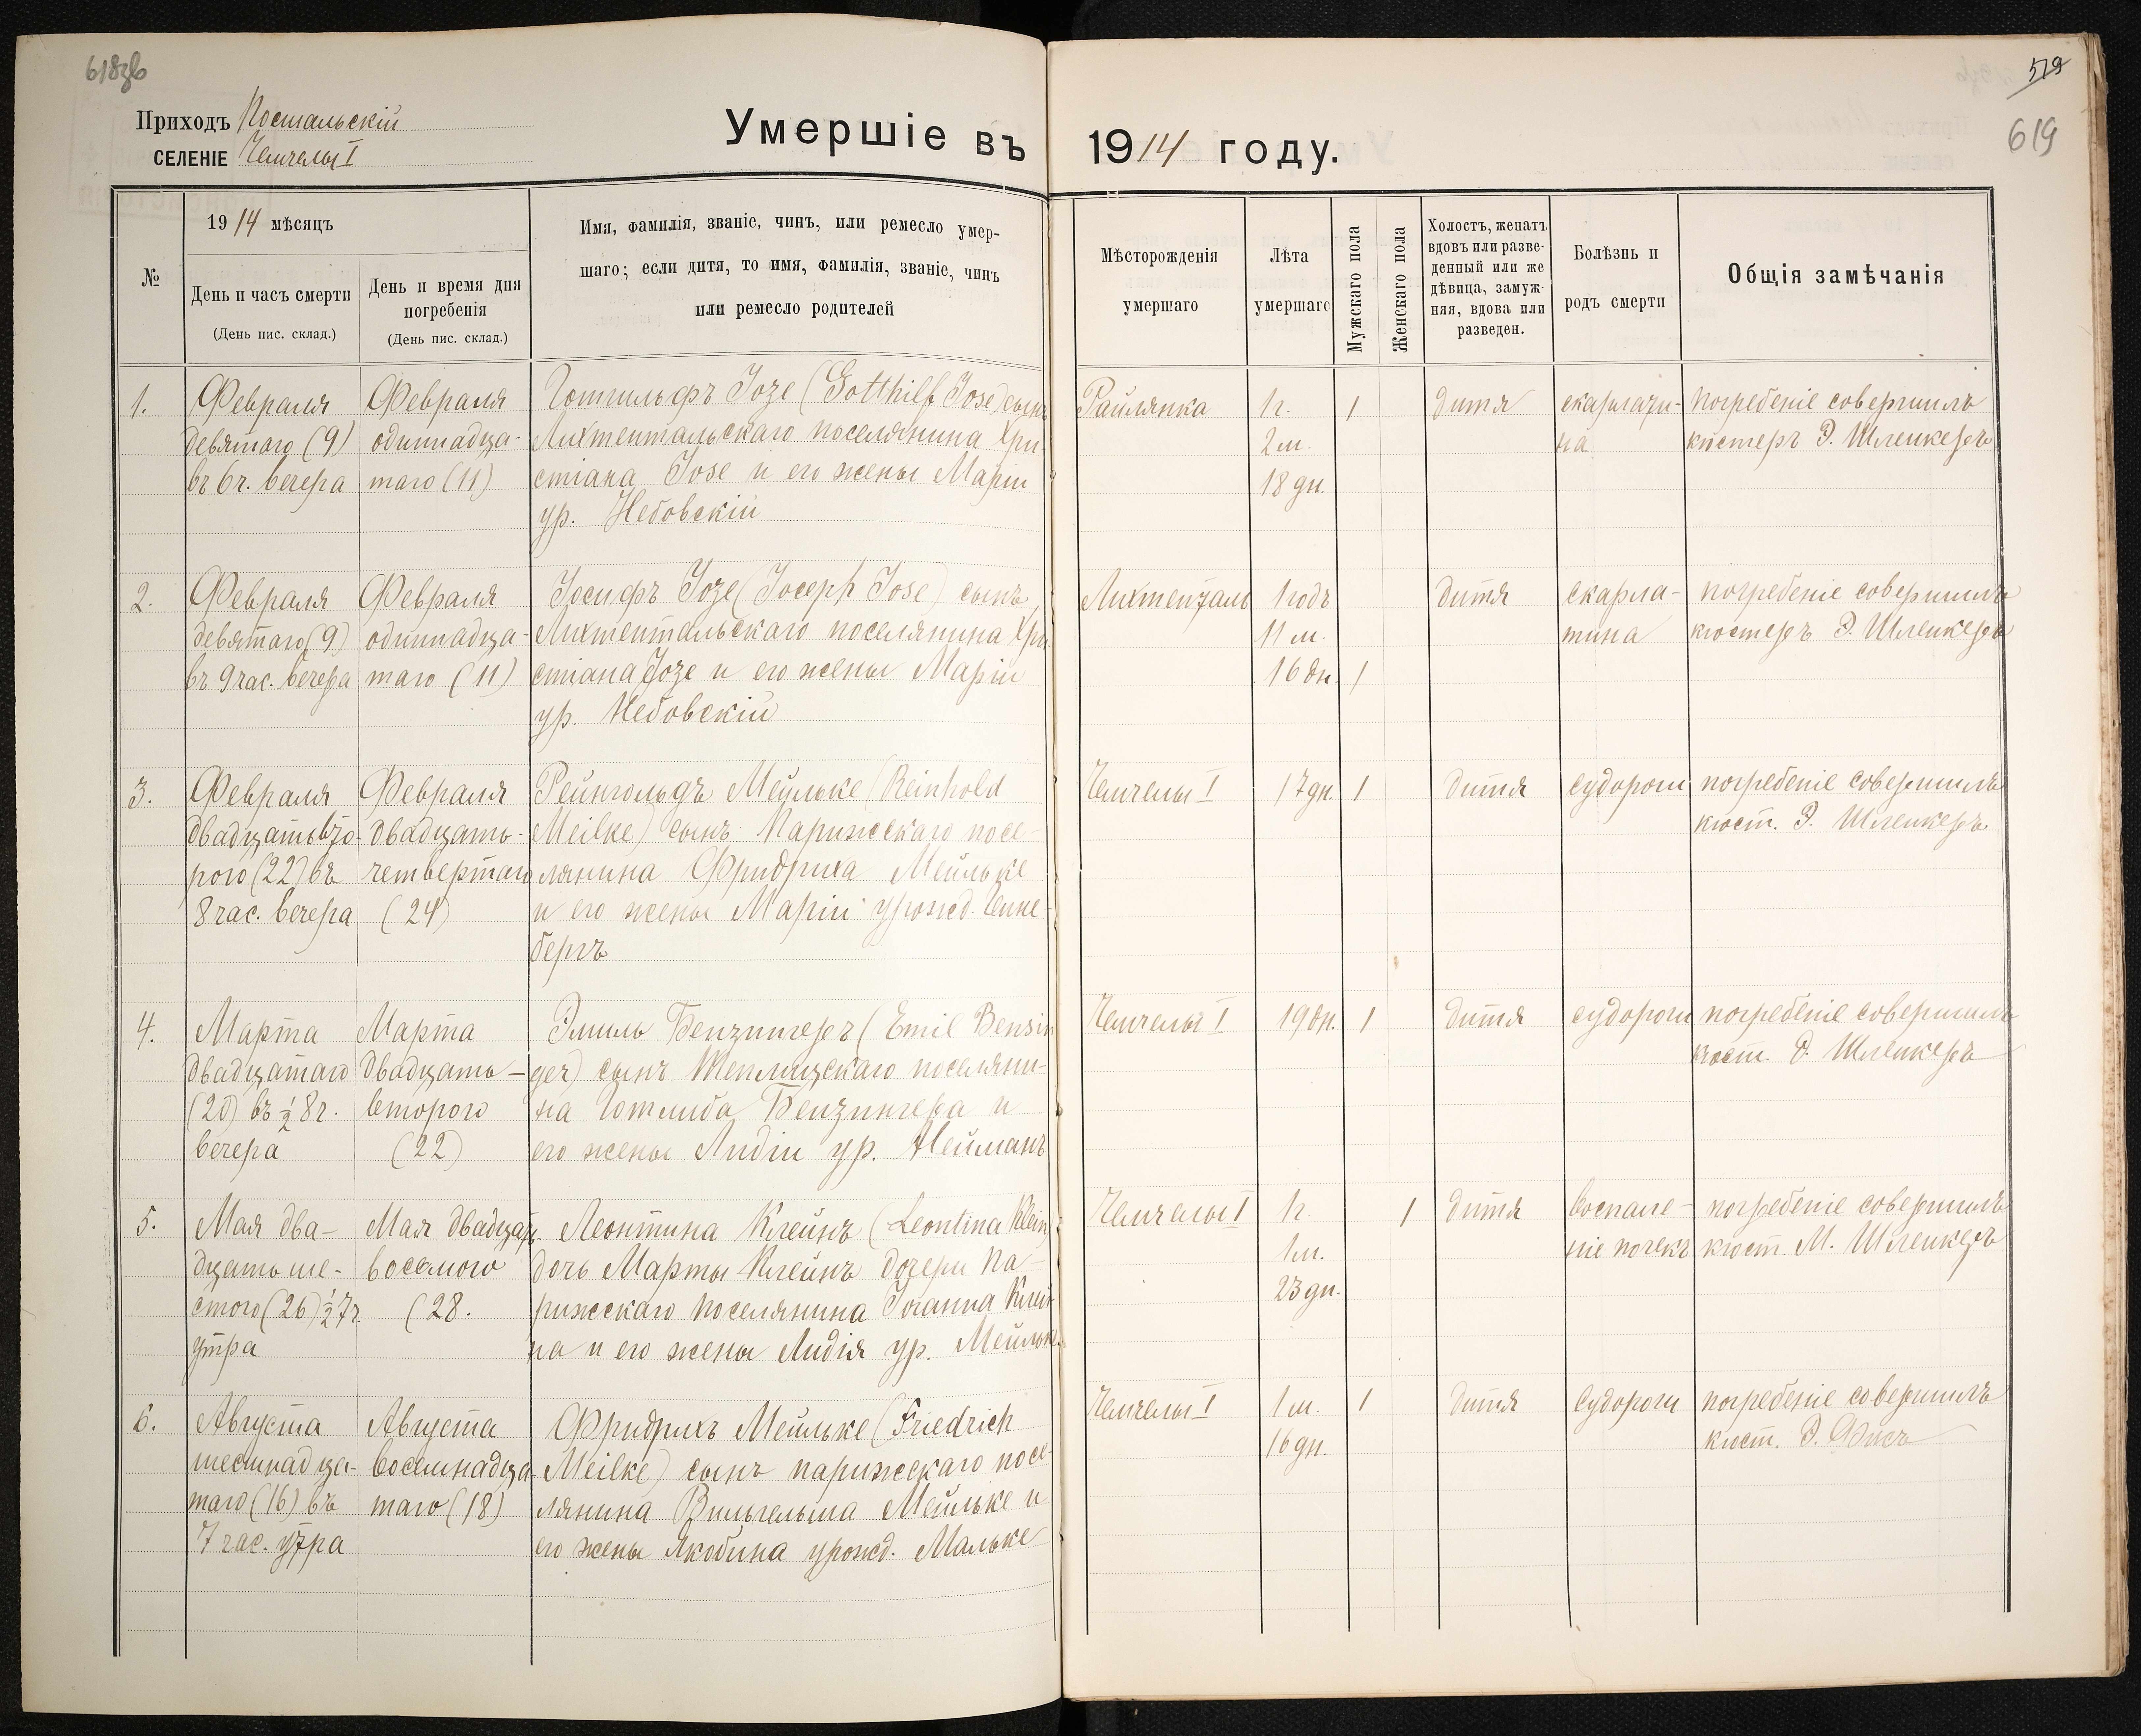 618зв
Приходъ Постальскій
СЕЛЕНІЕ Чемчелы I
Умершіе въ 1914 году.
519
619
№
1914 мѣсяцъ
День и часъ смерти
(День пис. склад.)
День и время дня
погребенія
(День пис. склад.)
Имя, фамилія, званіе, чинъ, или ремесло умер-
шаго; если дитя, то имя, фамилія, званіе, чинъ
или ремесло родителей
Мѣсторожденія
умершаго
Лѣта
умершаго
Мужскаго пола
Женскаго пола
Холостъ, женатъ
вдовъ или разве-
денный или же
дѣвица, замуж-
няя, вдова или
разведен.
Болѣзнь и
родъ смерти
Общія замѣчанія
1.
Февраля
девятаго (9)
въ 6ч. вечера
Февраля
одиннадца-
таго (11)
Готгильфъ Іозе (Gotthilf Jose) сынъ
Лихтентальскаго поселянина Хри-
стіана Jose и его жены Маріи
ур. Небовскій
Райлянка
1г.
2м.
18 дн.
1
дитя
скарлати-
на
погребеніе совершилъ
кюстеръ Э. Шленкеръ
2.
Февраля
девятаго (9)
въ 9 час. вечера
Февраля
одиннадца-
таго (11)
Іосифъ Іозе (Joseph Jose) сынъ
Лихтентальскаго поселянина Хри-
стіана Іозе и его жены Маріи
ур. Небовскій
Лихтенталь
1 годъ
11 м.
16 дн.
1
дитя
скарла-
тина
погребеніе совершилъ
кюстеръ Э. Шленкеръ
3.
Февраля
двадцать вто-
рого (22) въ
8 час. вечера
Февраля
двадцать-
четвертаго
(24)
Рейнгольдъ Мейльке (Reinhold
Meilke) сынъ Парижскаго посе-
лянина Фридриха Мейльке
и его жены Маріи урожд.
бергъ
Чемчелы I
17 дн.
1
дитя
судороги
погребеніе совершилъ
кюст. Э. Шленкеръ
4.
Марта
двадцатаго
(20) въ ½ 8ч.
вечера
Марта
двадцать-
второго
(22)
Эмиль Бензингеръ (Emil Bensin
ger) сынъ Теплицскаго поселяни-
на Готлиба Бензингера и
его жены Лидіи ур. Нейманъ
Чемчелы I
19 дн.
1
дитя
судороги
погребеніе совершилъ
кюст. Э. Шленкеръ
5.
Мая два-
дцать ше-
стого (26) ½ 7ч.
утра
Мая двадцать
восьмого
(28.
Леонтина Клейнъ (Leontina Klein)
дочь Марты Клейнъ дочери Па-
рижскаго поселянина Іоганна Клей-
на и его жены Лидія ур. Мейльке
Чемчелы I
1г.
1м.
23 дн.
1
дитя
воспале-
ніе почекъ
погребеніе совершилъ
кюст. М. Шленкеръ
6.
Августа
шестнадца-
таго (16) въ
7 час. утра
Августа
восемнадца-
таго (18)
Фридрихъ Мейльке (Friedrich
Meilke) сынъ парижскаго посе-
лянина Вильгельма Мейльке и
его жены Якобина урожд. Мальке
Чемчелы I
1 м.
16 дн.
1
дитя
судороги
погребеніе совершилъ
кюст. Э. Фисъ